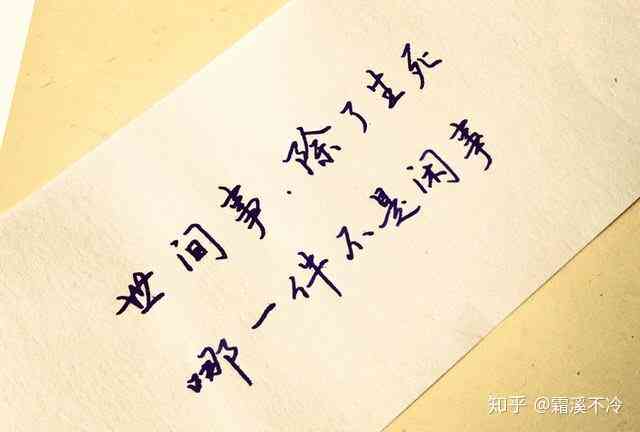 世间事.除了生死
哪一件不是闲事
知乎 @霜溪不冷